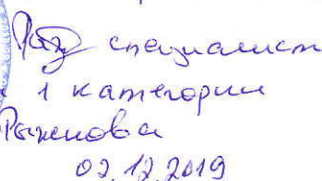 специалист
1 категории
Рыженова
02.12.2019